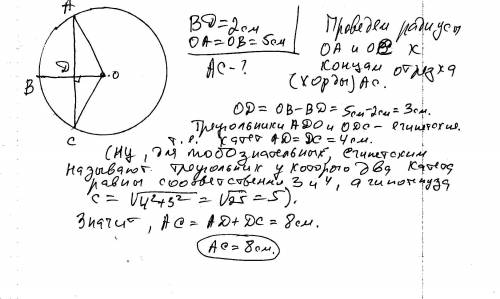 A
D
O
B
C
BD=2см
OA=OB=5см
AC-?
Проведем радиусы
OA и OB к
концам отрезка
(хорды) AC.
OD= OB-BD= 5см-2см=3см.
Треугольники ADO и ODC- египетские.
т.е. катет AD=DC=4см.
(Ну, для любознательных, египетским
называют треугольник у которого два катета
равны соответственно 3 и 4, а гипотенуза
c = √4²+3² = √25 = 5).
Значит, AC = AD+DC = 8см.
AC=8см.